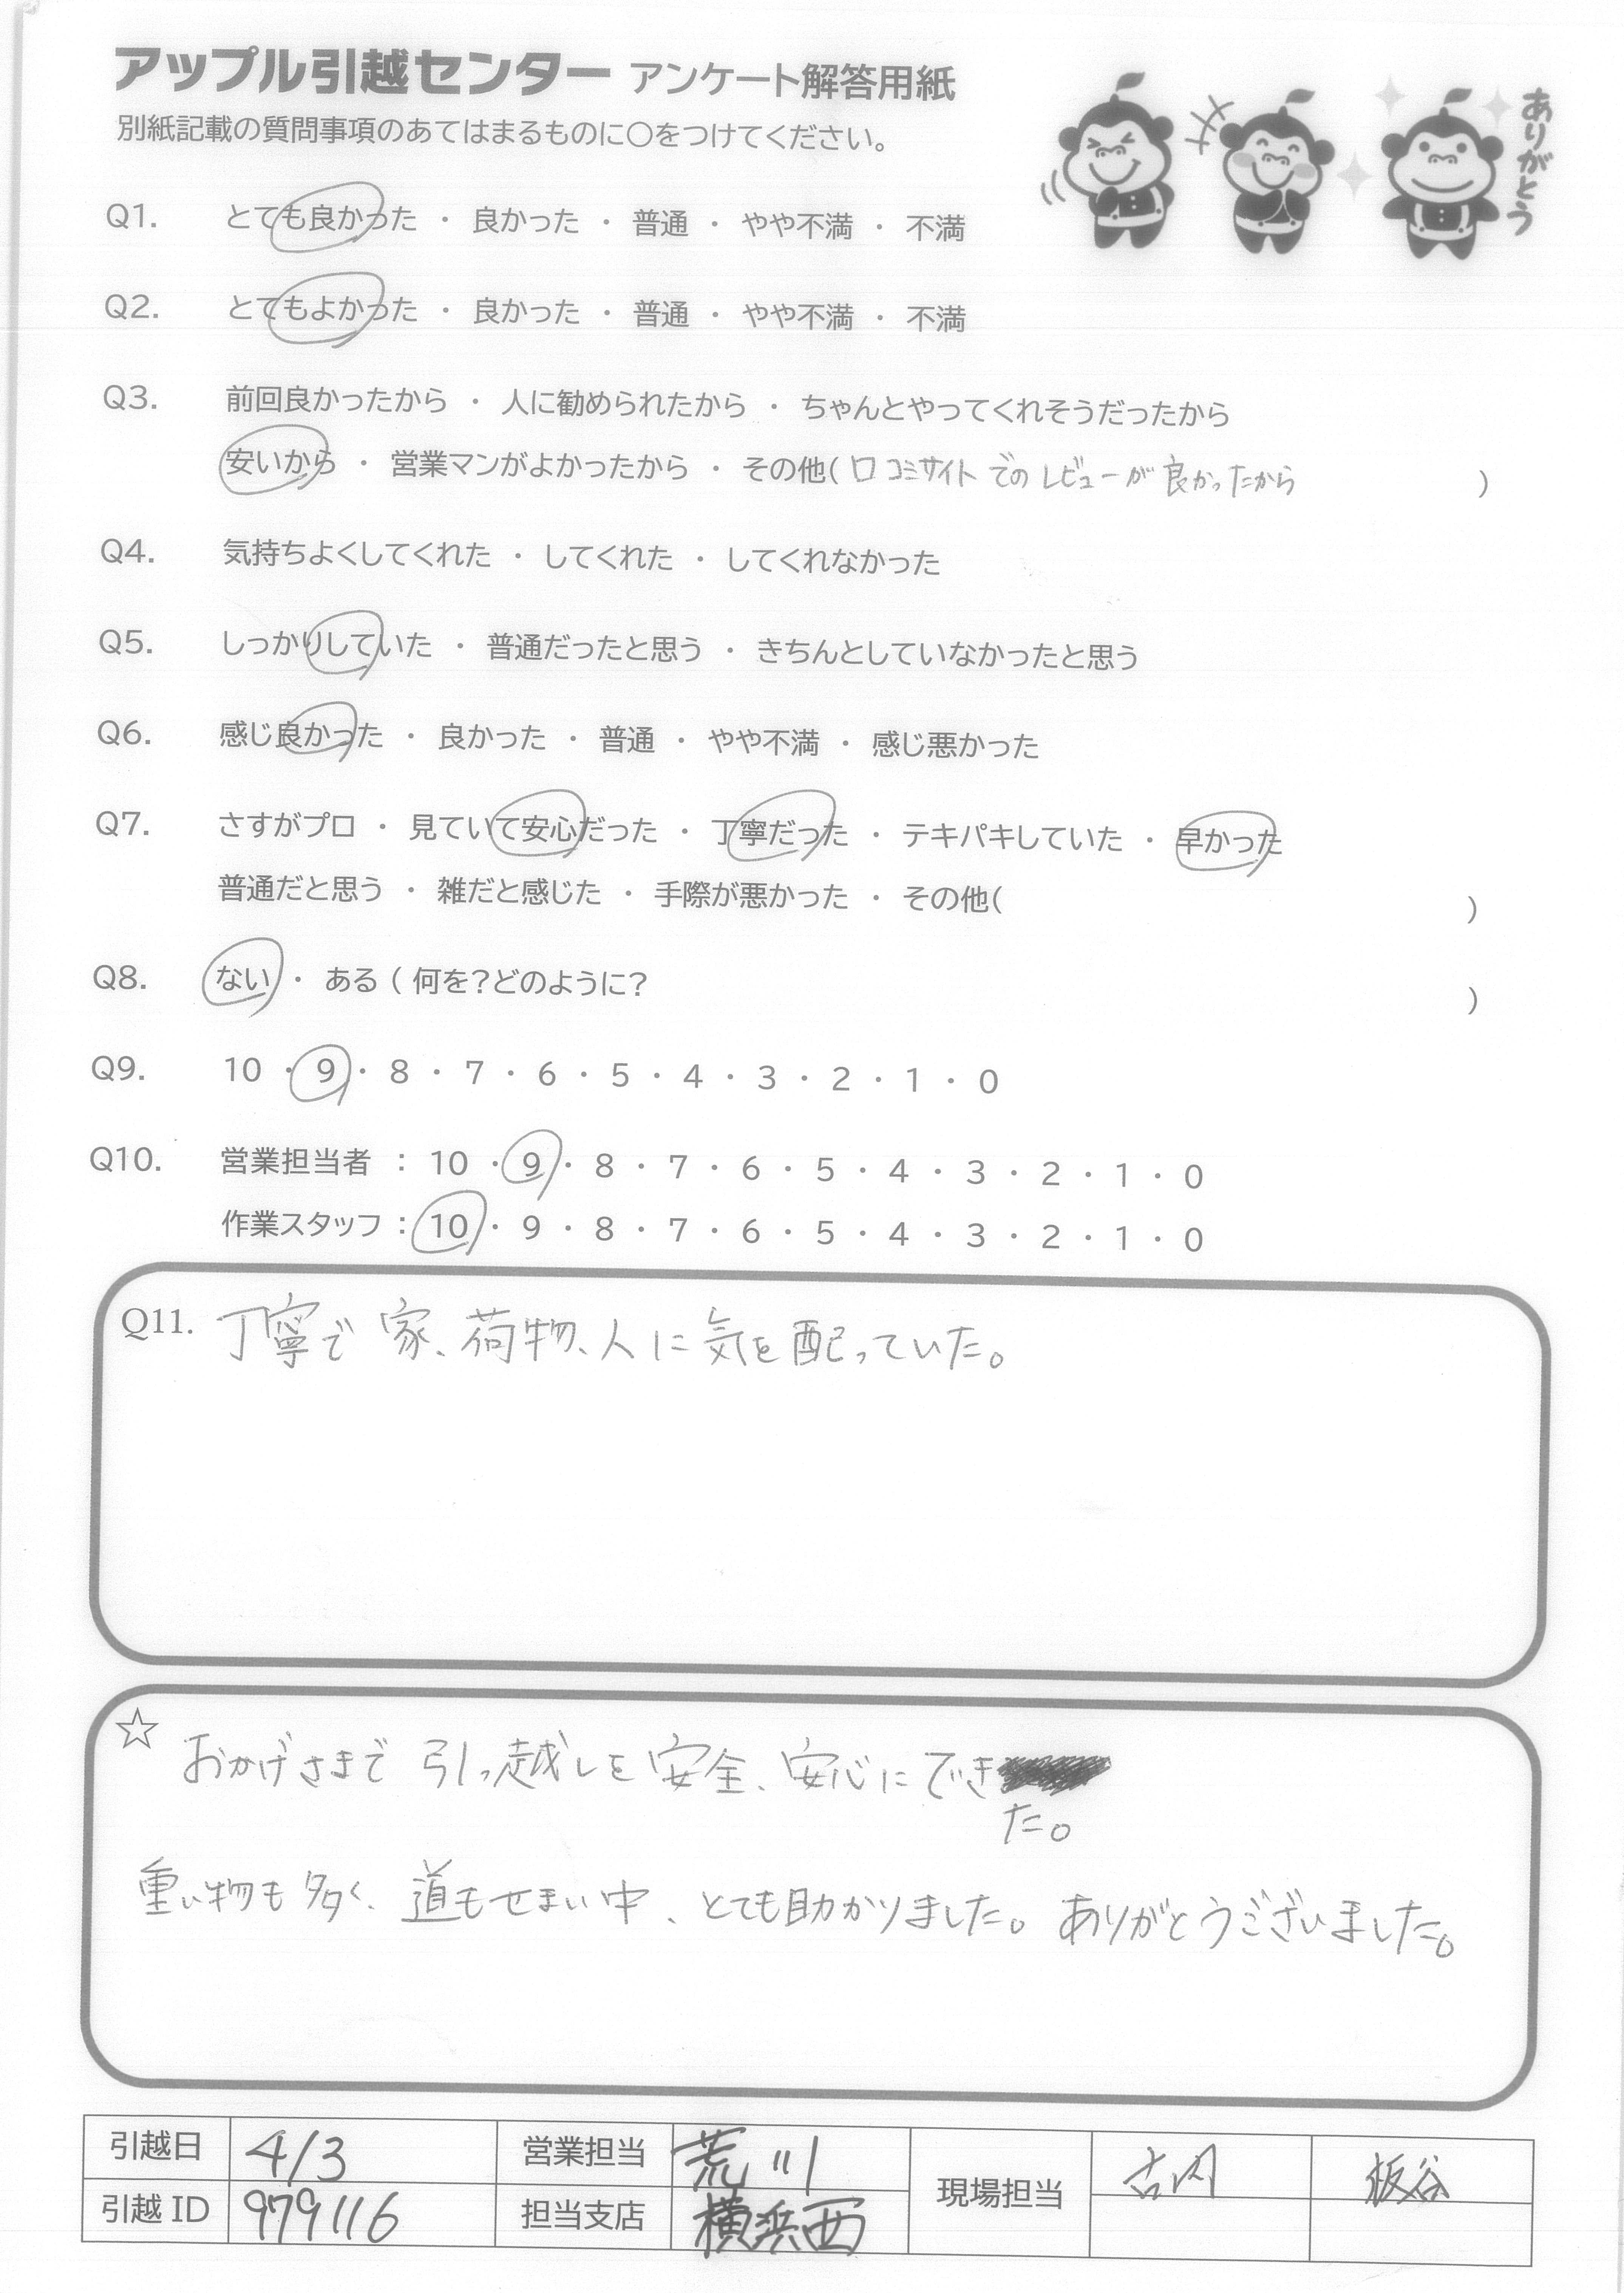 アップル引越センター アンケート解答用紙
別紙記載の質問事項のあてはまるものに○をつけてください。
ありがとう
Q1. とても良かった ・ 良かった ・ 普通 ・ やや不満 ・ 不満
Q2. とてもよかった ・ 良かった ・ 普通 ・ やや不満 ・ 不満
Q3. 前回良かったから ・ 人に勧められたから ・ ちゃんとやってくれそうだったから
安いから ・ 営業マンがよかったから ・ その他( 口コミサイトでのレビューが良かったから )
Q4. 気持ちよくしてくれた ・ してくれた ・ してくれなかった
Q5. しっかりしていた ・ 普通だったと思う ・ きちんとしていなかったと思う
Q6. 感じ良かった ・ 良かった ・ 普通 ・ やや不満 ・ 感じ悪かった
Q7. さすがプロ ・ 見ていて安心だった ・ 丁寧だった ・ テキパキしていた ・ 早かった
普通だと思う ・ 雑だと感じた ・ 手際が悪かった ・ その他( )
Q8. ない ・ ある ( 何を?どのように? )
Q9. 10 ・ 9 ・ 8 ・ 7 ・ 6 ・ 5 ・ 4 ・ 3 ・ 2 ・ 1 ・ 0
Q10. 営業担当者 : 10 ・ 9 ・ 8 ・ 7 ・ 6 ・ 5 ・ 4 ・ 3 ・ 2 ・ 1 ・ 0
作業スタッフ : 10 ・ 9 ・ 8 ・ 7 ・ 6 ・ 5 ・ 4 ・ 3 ・ 2 ・ 1 ・ 0
Q11. 丁寧で 家、荷物、人に気を配っていた。
☆ おかげさまで 引っ越しを安全、安心にでき
た。
重い物も多く、道もせまい中、とても助かりました。ありがとうございました。
引越日 4/3 営業担当 荒川 現場担当 古内 板谷
引越ID 979116 担当支店 横浜西